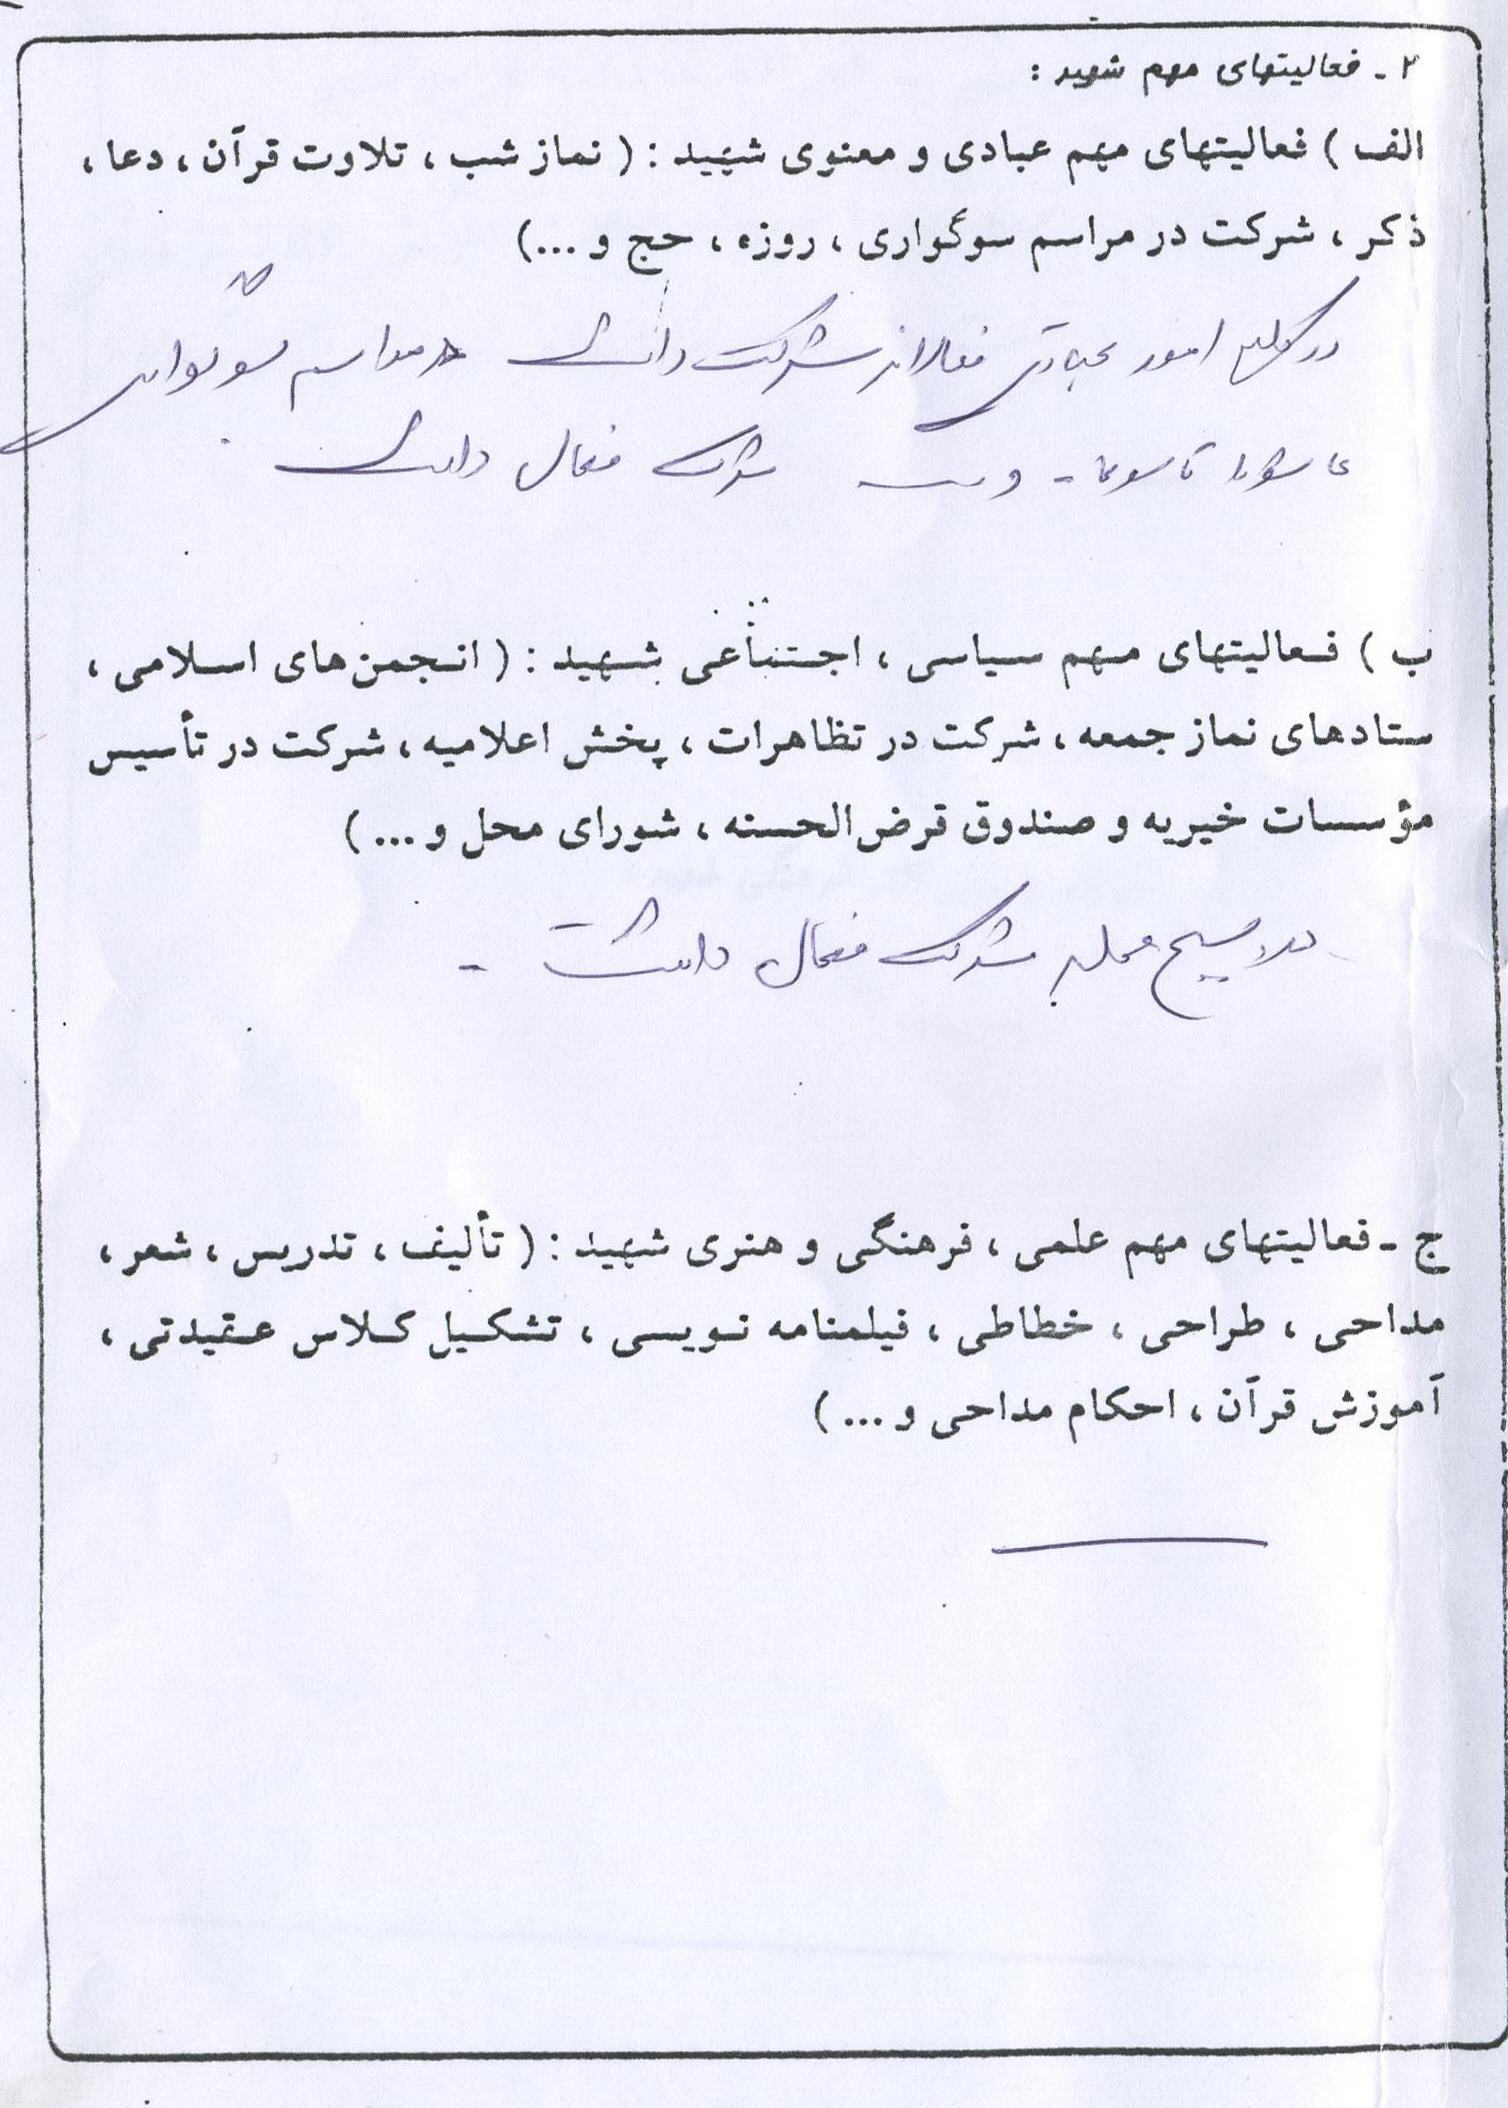 ۲ - فعالیتهای مهم شهید :
الف ) فعالیتهای مهم عبادی و معنوی شهید : ( نماز شب ، تلاوت قرآن ، دعا ،
ذکر ، شرکت در مراسم سوگواری ، روزه ، حج و ...)
در کلیه امور عبادی فعالانه شرکت داشت در مراسم سوگواری
عاشورا تاسوعا - و شرکت فعال داشت
ب ) فعالیتهای مهم سیاسی ، اجتماعی شهید : ( انجمن های اسلامی ،
ستادهای نماز جمعه ، شرکت در تظاهرات ، پخش اعلامیه ، شرکت در تأسیس
مؤسسات خیریه و صندوق قرض الحسنه ، شورای محل و ... )
در بسیج محله شرکت فعال داشت -
ج - فعالیتهای مهم علمی ، فرهنگی و هنری شهید : ( تألیف ، تدریس ، شعر ،
مداحی ، طراحی ، خطاطی ، فیلمنامه نویسی ، تشکیل کلاس عقیدتی ،
آموزش قرآن ، احکام مداحی و ... )